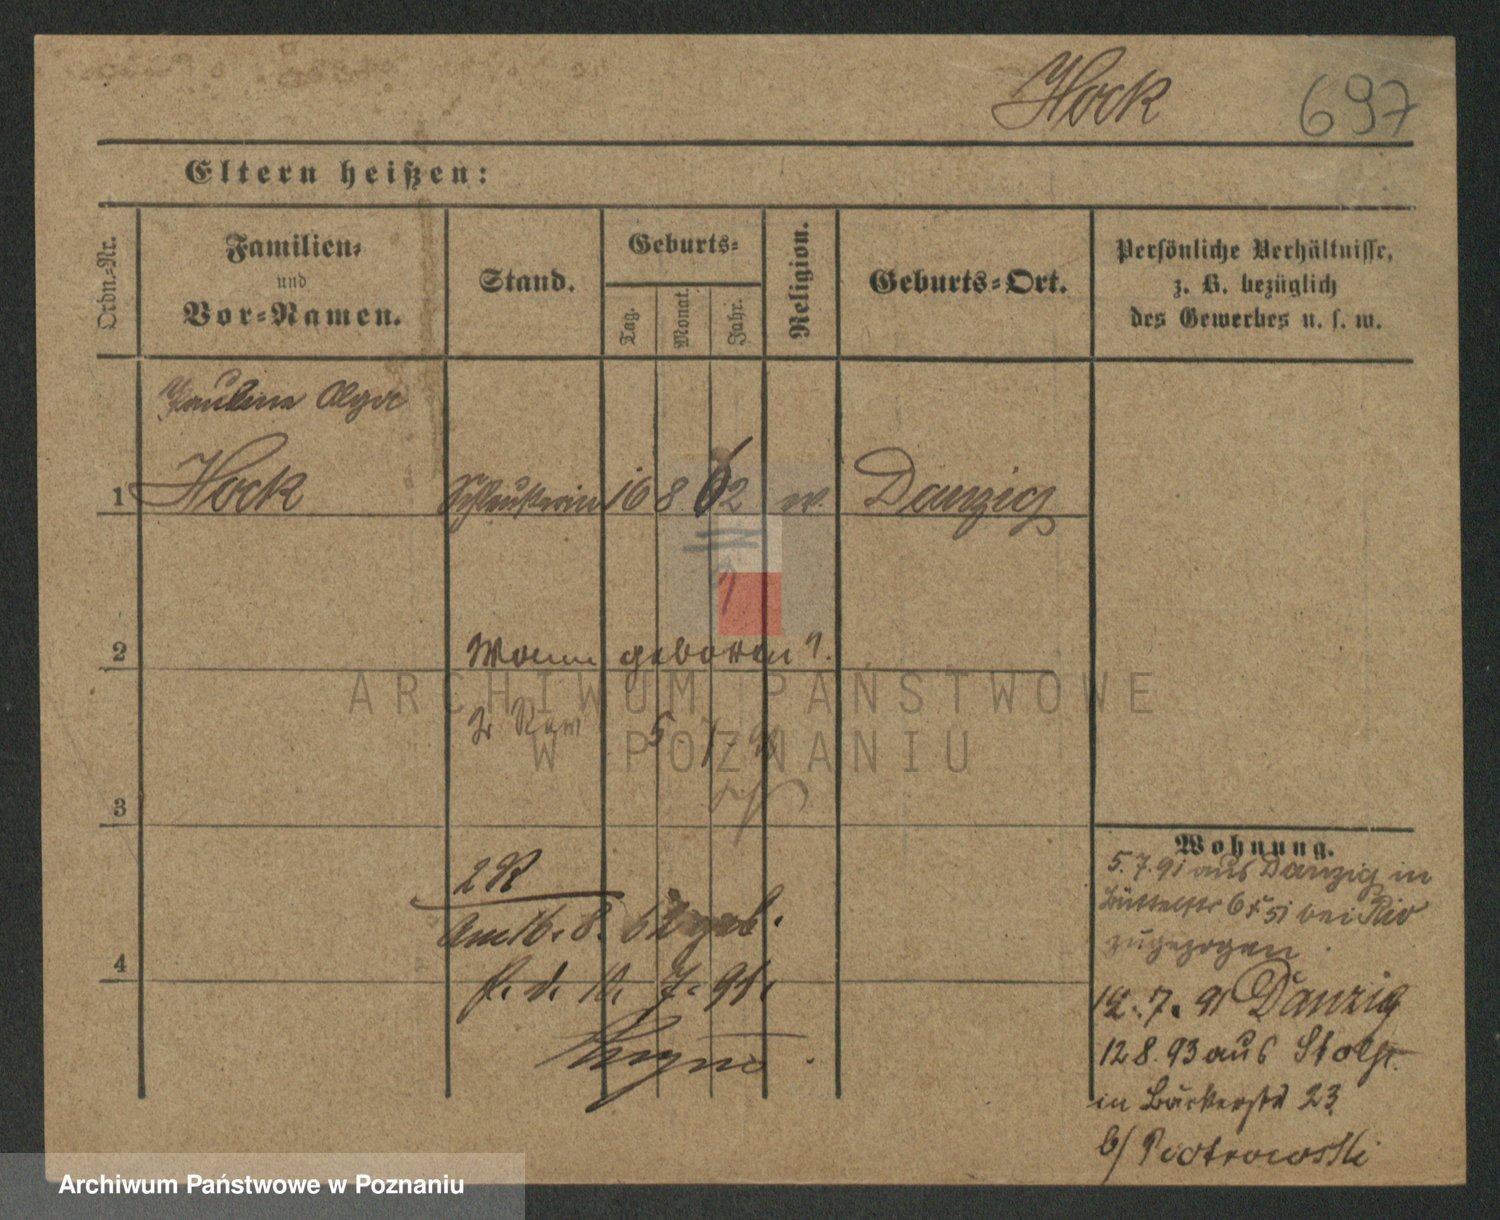 Hock 697
Eltern heißen:
Ordn.-Nr.
Familien-
und
Vor-Namen.
Stand.
Geburts-
Tag.
Monat.
Jahr.
Religion.
Geburts-Ort.
Persönliche Verhältnisse,
z. B. bezüglich
des Gewerbes u. s. w.
Pauline Olga
1 Hock 16 8 62 ev. Danzig
2 Wann geboren?
2. Rev 5. 7. 91
ARCHIWUM PAŃSTWOWE
W POZNANIU
3
2 R
am 16. 8. 62 geb.
4
p. d. 10. 7. 91.
Wohnung.
5. 7. 91 aus Danzig in
Büttelstr 6 bei
zugezogen.
12. 7. 91 Danzig
12 8. 93 aus Stolp.
in Bäckerstr 23
b/ Piotrowski
Archiwum Państwowe w Poznaniu